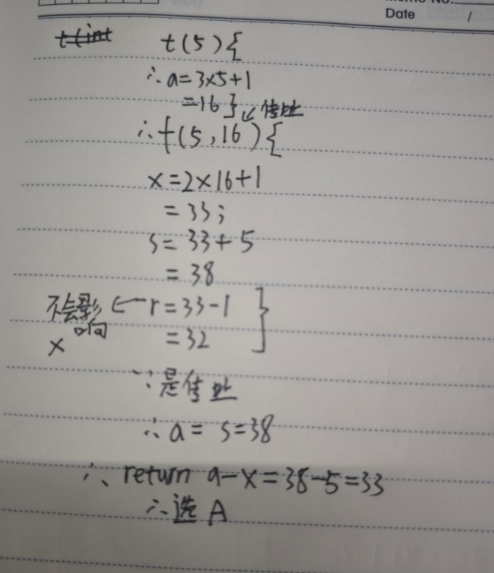 Memo No.
Date /
t(int t(5){
∴a=3×5+1
=16} ↙传址
∴f(5,16){
x=2×16+1
=33;
s=33+5
=38
不会影响x ← r=33-1
=32 }
∵是传址
∴a=s=38
∴return a-x=38-5=33
∴选A